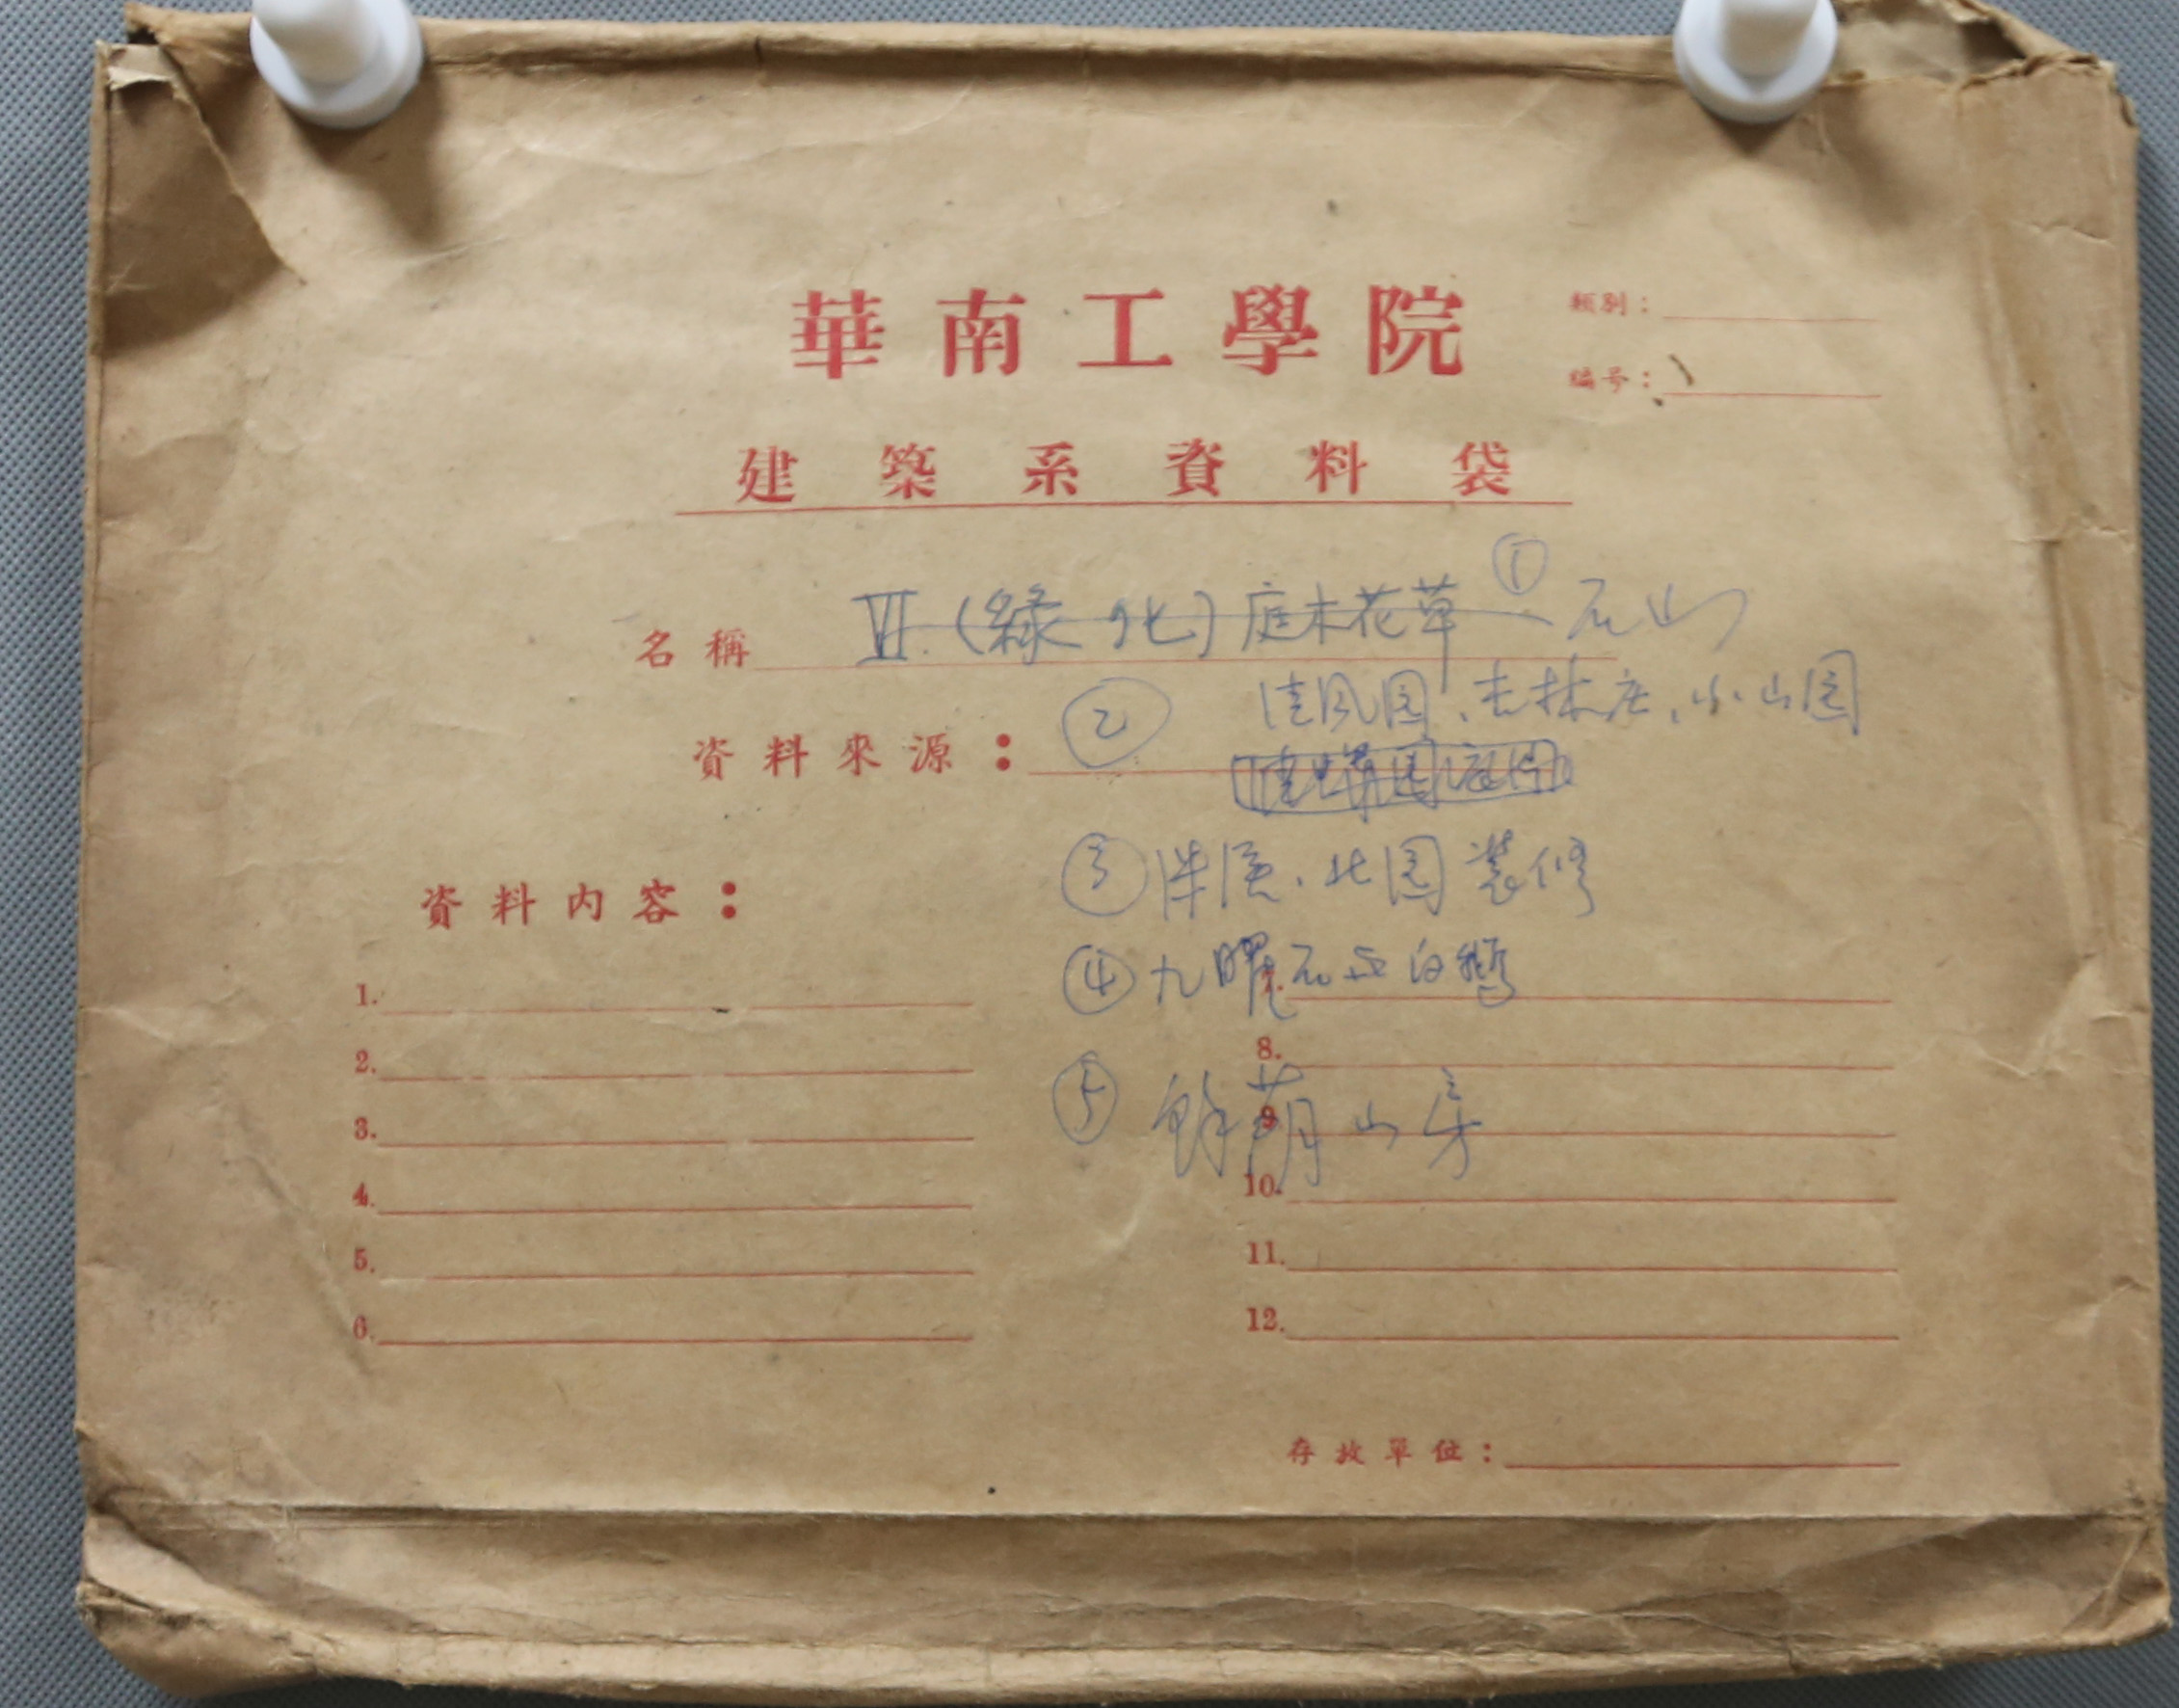 華南工學院
類別：
編号：
建築系資料袋
①
名稱 VI.（綠化）庭木花草 石山
② 园、杏林庄、小山园
資料來源：
③ 北园装修
資料内容：
④ 九曜石 白鹅
1.
2. 8.
⑤ 餘蔭山房
3. 9.
4. 10.
5. 11.
6. 12.
存放單位：